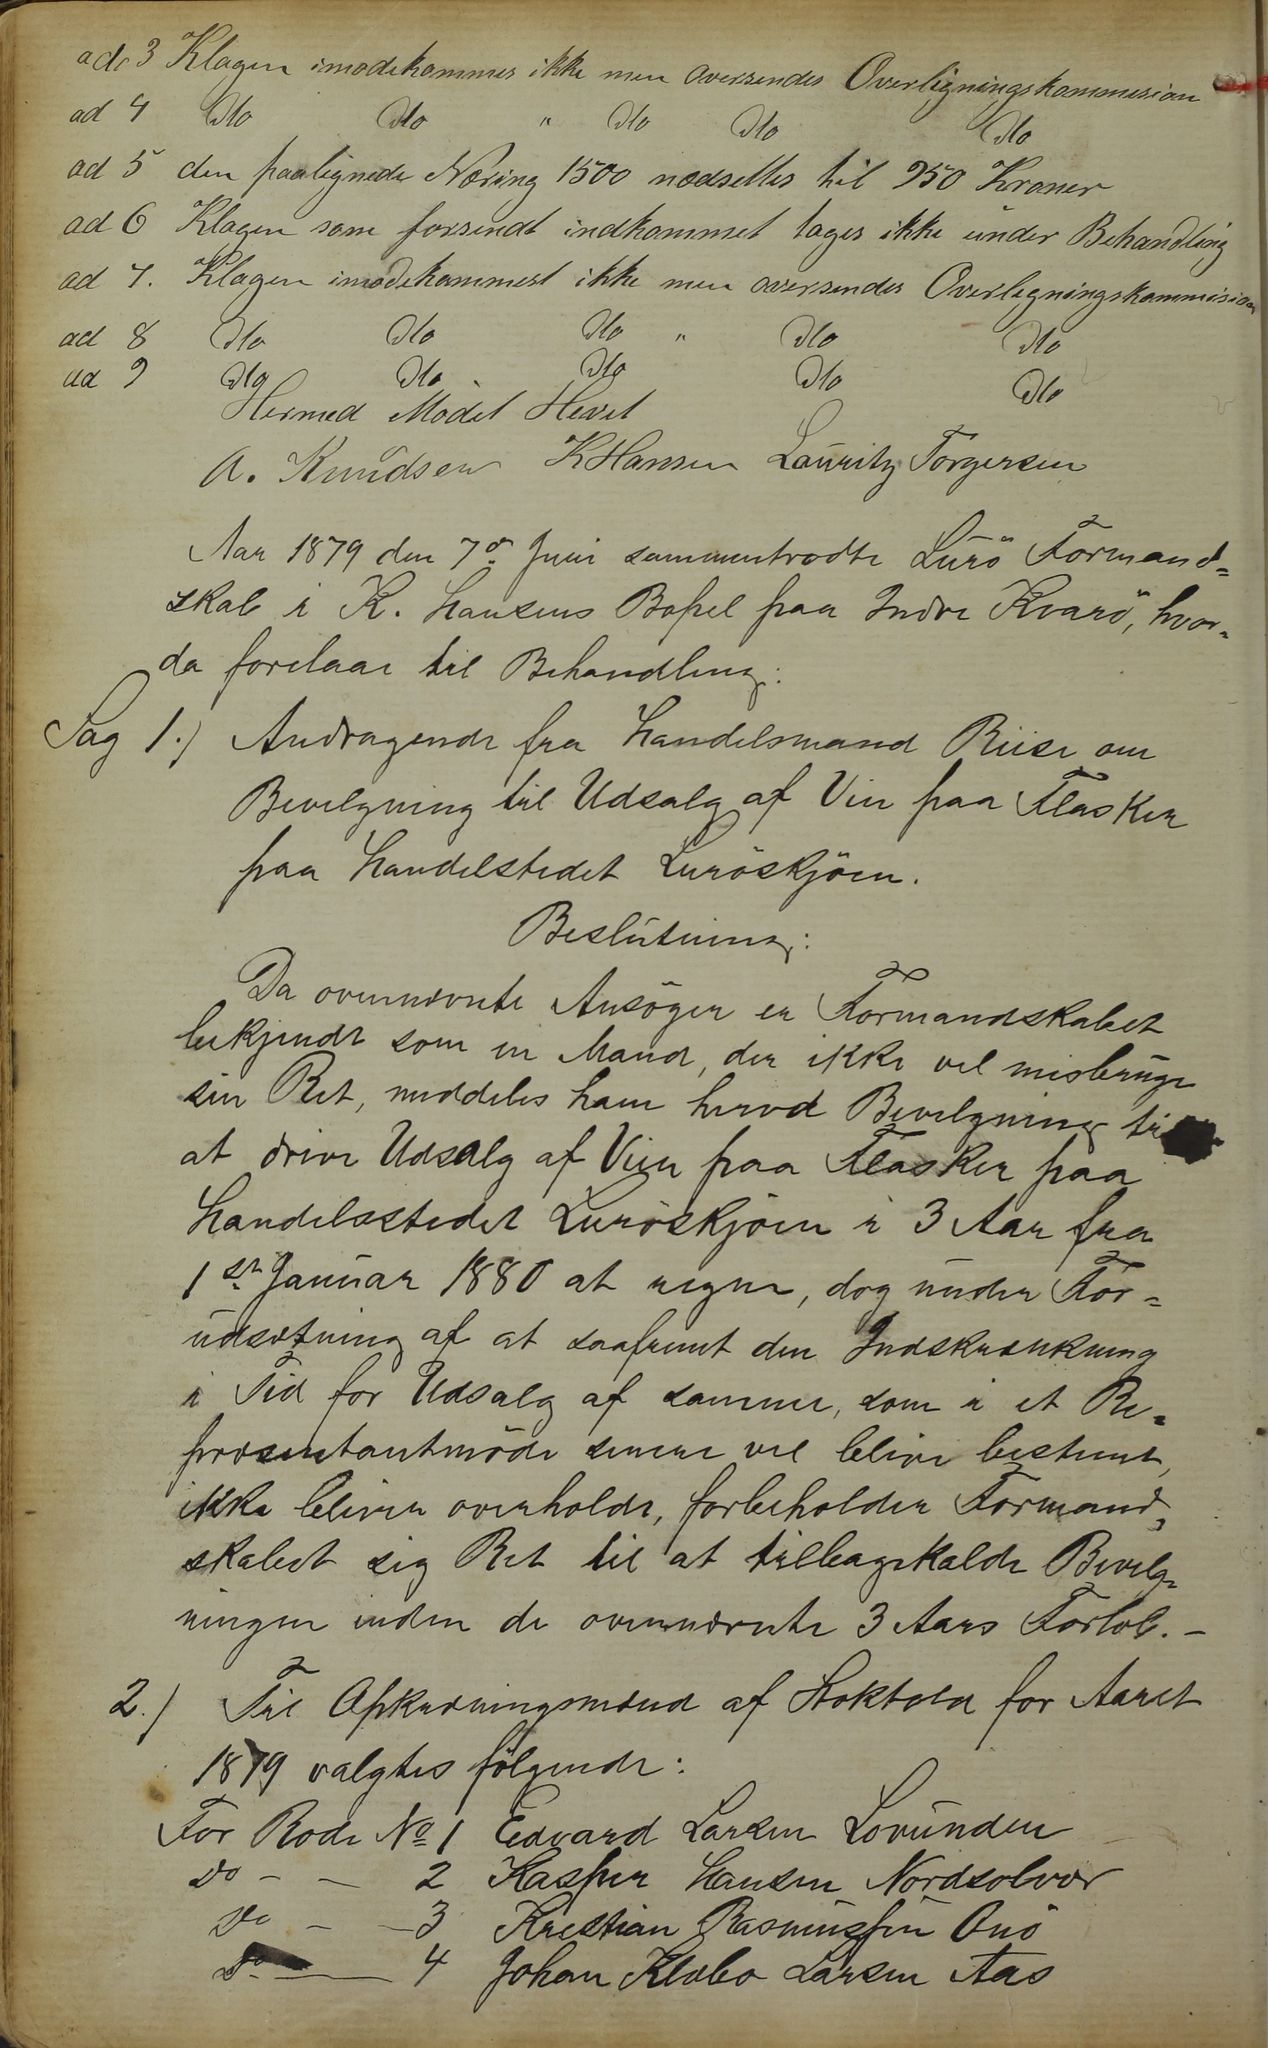 ad 3 Klagen imødekommes ikke men oversendes Overligningskommisian
ad 4 Dto Dto " Dto Dto Dto
ad 5 den paalignede Næring 1500 nedsettes til 950 Kroner
ad 6 Klagen som forsendt indkommet tages ikke under Behandling
ad 7. Klagen imødekommest ikke men oversendes Overligningskommision
ad 8 Dto Dto Dto " Dto Dto
ad 9 Dto Dto Dto Dto Dto
Hermed Mødet Hevet
A. Knudsen K Hansen Lauritz Torgersen
Aar 1879 den 7de Juni sammentraadte Lurö Formand=
skab i K. Hansens Bopel paa Indre Kvarö, hvor=
da forelaae til Behandling:
Sag 1.) Andragende fra Handelsmand Riise om
Bevilgning til Udsalg af Vin paa Flasker
paa Handelstedet Luröskjöen.
Beslutning:
Da ovennævnte Ansöger er Formandskabet
bekjendt som en Mand, der ikke vil misbruge
sin Ret, meddeles ham herved Bevilgning til
at drive Udsalg af Vin paa Flasker paa
Handelsstedet Luröskjöen i 3 Aar fra
1ste Januar 1880 at regne, dog under For=
udsætning af at saafremt den Indskrænkning
i Tid for Udsalg af samme, som i et Re=
præsentantmöde senere vil blive bestemt,
ikke bliver overholdt, forbeholder Formand=
skabet sig Ret til at tilbagekalde Bevilg=
ningen inden de ovennævnte 3 Aars Forlöb. -
2.) Til Opkrævningsmænd af Stoktold for Aaret
1879 valgtes følgende:
For Rode No 1 Edvard Larsen Lovunden
Do - - 2 Kasper Hansen Nordsolvær
Do - - 3 Kristian Rasmussen Onö
Do - 4 Johan Klæbo Larsen Aas